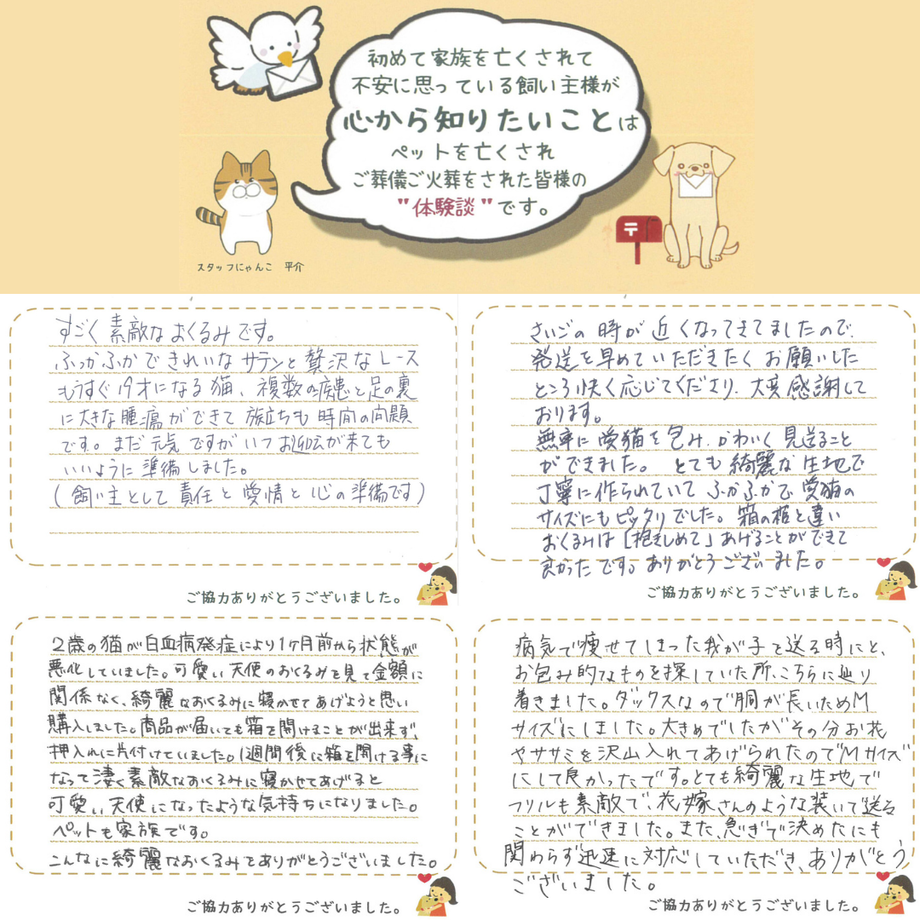 初めて家族を亡くされて
不安に思っている飼い主様が
心から知りたいことは
ペットを亡くされ
ご葬儀ご火葬をされた皆様の
"体験談"です。
スタッフにゃんこ 平介
すごく素敵なおくるみです。
ふっかふかできれいなサテンと贅沢なレース
もうすぐ19才になる猫、複数の疾患と足の裏
に大きな腫瘍ができて旅立ちも時間の問題
です。まだ元気ですがいつお迎えが来ても
いいように準備しました。
(飼い主として責任と愛情と心の準備です)
ご協力ありがとうございました。
さいごの時が近くなってきてましたので
発送を早めていただきたくお願いした
ところ快く応じてくださり、大変感謝して
おります。
無事に愛猫を包み、かわいく見送ること
ができました。とても綺麗な生地で
丁寧に作られていてふかふかで愛猫の
サイズにもピッタリでした。箱の柩と違い
おくるみは「抱きしめて」あげることができて
良かったです。ありがとうございました。
ご協力ありがとうございました。
2歳の猫が白血病発症により1ヶ月前から状態が
悪化していました。可愛い天使のおくるみを見て金額に
関係なく、綺麗なおくるみに寝かせてあげようと思い
購入しました。商品が届いても箱を開けることが出来ず、
押入れに片付けていました。1週間後に箱を開ける事に
なって凄く素敵なおくるみに寝かせてあげると
可愛い天使になったような気持ちになりました。
ペットも家族です。
こんなに綺麗なおくるみをありがとうございました。
ご協力ありがとうございました。
病気で痩せてしまった我が子を送る時にと、
お包み的なものを探していた所、こちらに辿り
着きました。ダックスなので胴が長いためM
サイズにしました。大きめでしたがその分お花
やササミを沢山入れてあげられたのでMサイズ
にして良かったです。とても綺麗な生地で
フリルも素敵で、花嫁さんのような装いで送る
ことができました。また、急ぎで決めたにも
関わらず迅速に対応していただき、ありがとう
ございました。
ご協力ありがとうございました。